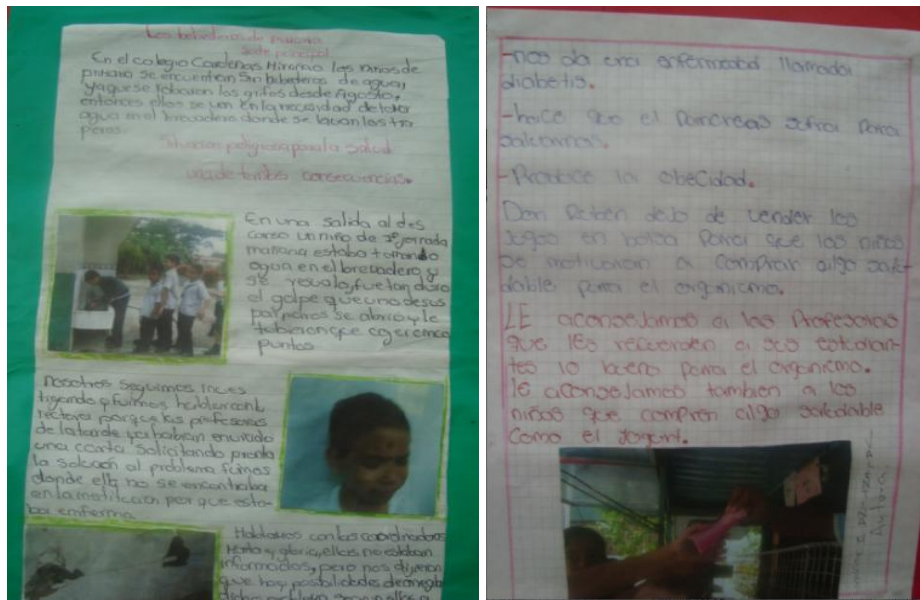 Los bebederos de primaria
Sede principal
En el colegio Cardenas Mirriño los niños de
primaria se encuentran Sin bebederos de agua,
ya que se robaron los grifos desde Agosto,
entonces ellos se ven en la necesidad de tomar
agua en el brevadero donde se lavan los tra
peros.
Situacion peligrosa para la salud
una de tantas consecuencias.
En una salida al des
canso un niño de 3º jornada
mañana estaba tomando
agua en el brevadero y
se resvalo, fue tan duro
el golpe que uno de sus
parpados se abrio y le
tubieron que coger cinco
puntos
nosotros seguimos inves
tigando y fuimos hablar con la
rectora porque las profesoras
de la tarde ya habian enviado
una carta solicitando pronta
la solucion al problema fuimos
donde ella no se encontraba
en la institucion por que esta-
ba enferma.
Hablamos con las coordinadoras
y gloria, ellas no estaban
informadas, pero nos dijeron
que hay posibilidades de arreglar
-nos da una enfermedad llamada
diabetis.
-hace que el Pancreas sufra para
salvarnos.
-Produce la obecidad.
Don Ruben dejo de vender los
Jugos en bolsa para que los niños
se motivaran a comprar algo salu-
dable para el organismo.
LE aconsejamos a las Profesoras
que les recuerden a sus estudian-
tes lo bueno para el organismo.
le aconsejamos tambien a los
niños que compren algo saludable
como el Yogurt.